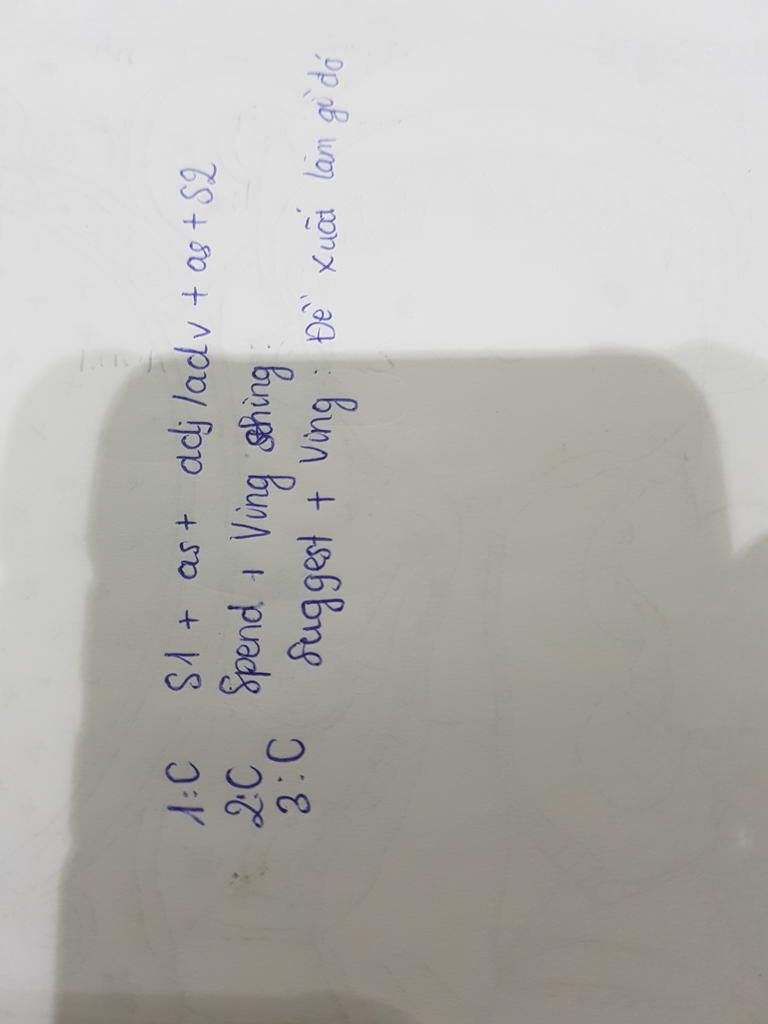 1:C S1 + as + adj/adv + as + S2
2:C Spend + Ving sthing:
3:C Suggest + Ving: Đề xuất làm gì đó